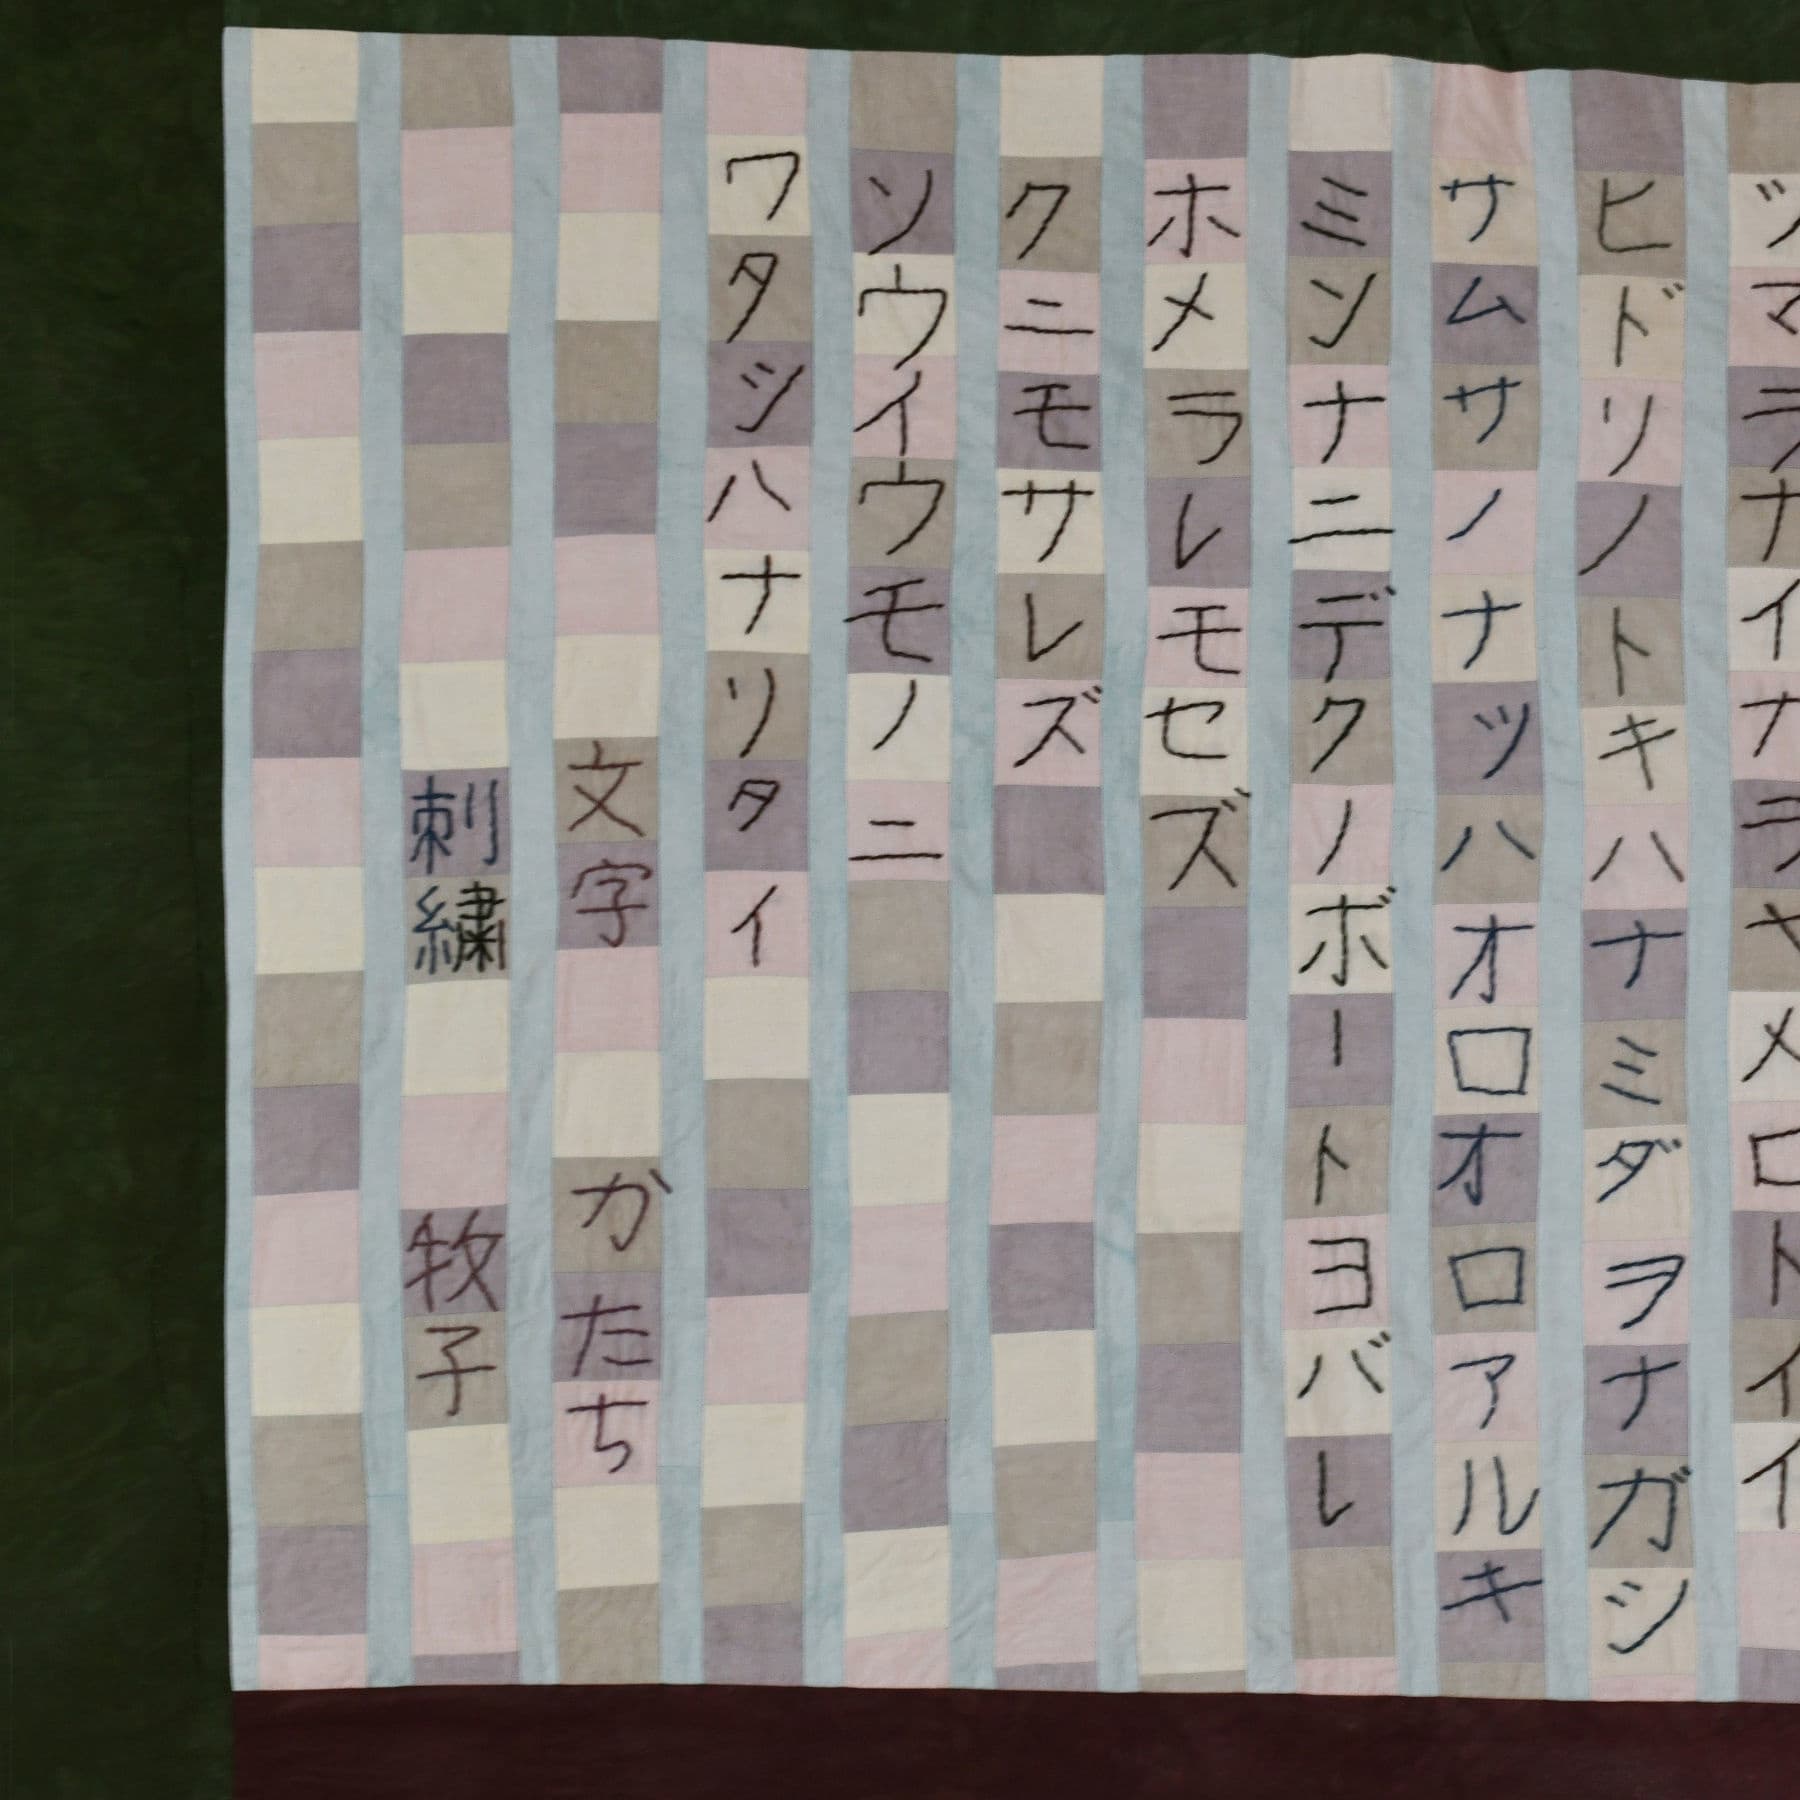 ツマラナイカラヤメロトイイ
ヒドリノトキハナミダヲナガシ
サムサノナツハオロオロアルキ
ミンナニデクノボートヨバレ
ホメラレモセズ
クニモサレズ
ソウイウモノニ
ワタシハナリタイ
文字 かたち
刺繍 牧子